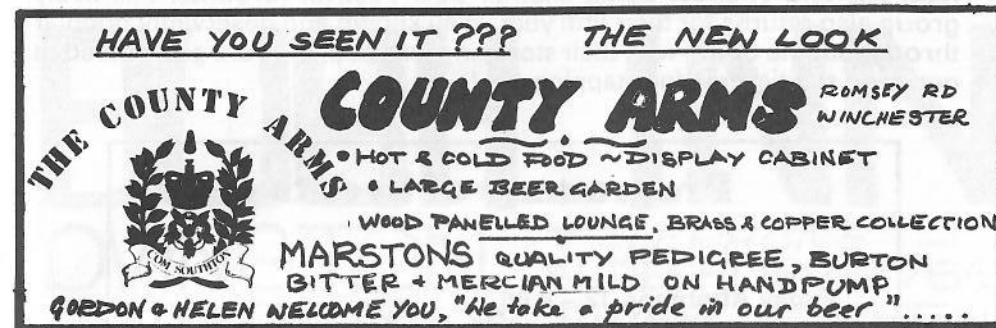 HAVE YOU SEEN IT ??? THE NEW LOOK
THE COUNTY ARMS
COM. SOUTHTON
COUNTY ARMS
ROMSEY RD
WINCHESTER
• HOT & COLD FOOD ~ DISPLAY CABINET
• LARGE BEER GARDEN
WOOD PANELLED LOUNGE, BRASS & COPPER COLLECTION
MARSTONS QUALITY PEDIGREE, BURTON
BITTER + MERCIAN MILD ON HANDPUMP
GORDON & HELEN WELCOME YOU, "We take a pride in our beer" .....